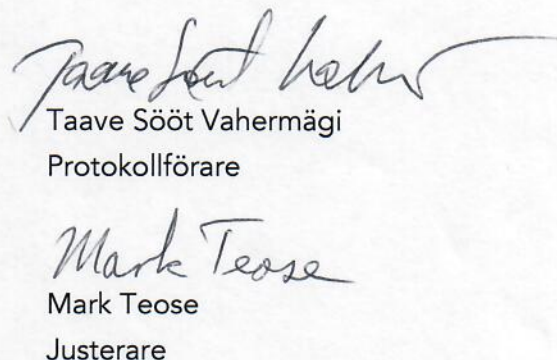 Taave Sööt Vahe
Taave Sööt Vahermägi
Protokollförare
Mark Teose
Mark Teose
Justerare